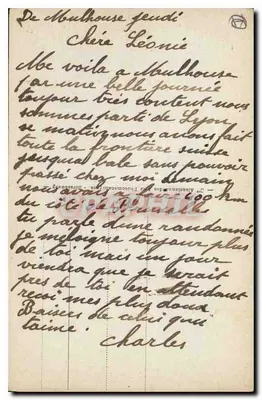 De Mulhouse jeudi
Chére Léonie
Me voila a Mulhouse
par une belle journée
toujour très content nous
sommes parti de Lyon
se matin nous avons fait
toute la frontiere suisse
jusqua bale sans pouvoir
passé chez moi demain
nous avons 600 km
du ici a
tu parle dune randonnée
je meloigne toujour plus
de toi mais un jour
viendra que je serait
pres de toi en attendant
recoi mes plus doux
Baisers de celui qui
taime.
Charles